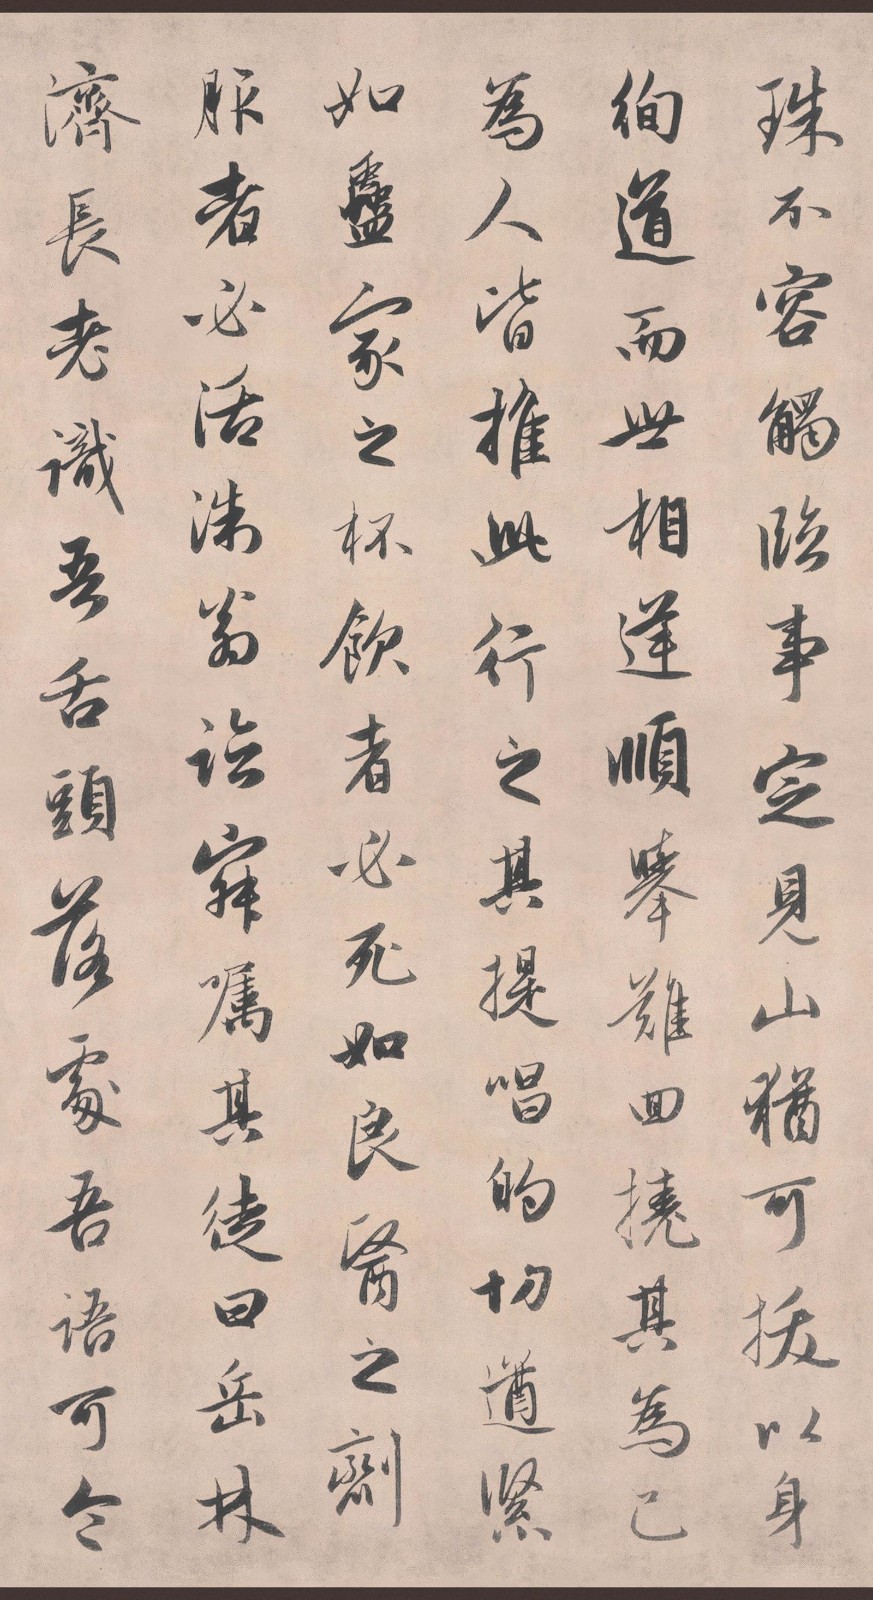 珠不容觸臨事定見山猶可拔以身
徇道而世相逆順舉難回撓其為己
為人皆推此行之其提唱的切遒緊
如蠱家之杯飲者必死如良醫之劑
服者必活洙翁診寐嘱其徒曰岳林
濟長老識吾舌頭落處吾語可令